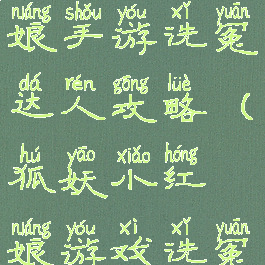 niáng shǒu yóu xǐ yuān
娘手游洗冤
dá rén gōng lüè
达人攻略（
hú yāo xiǎo hóng
狐妖小红
niáng yóu xì xǐ yuān
娘游戏洗冤